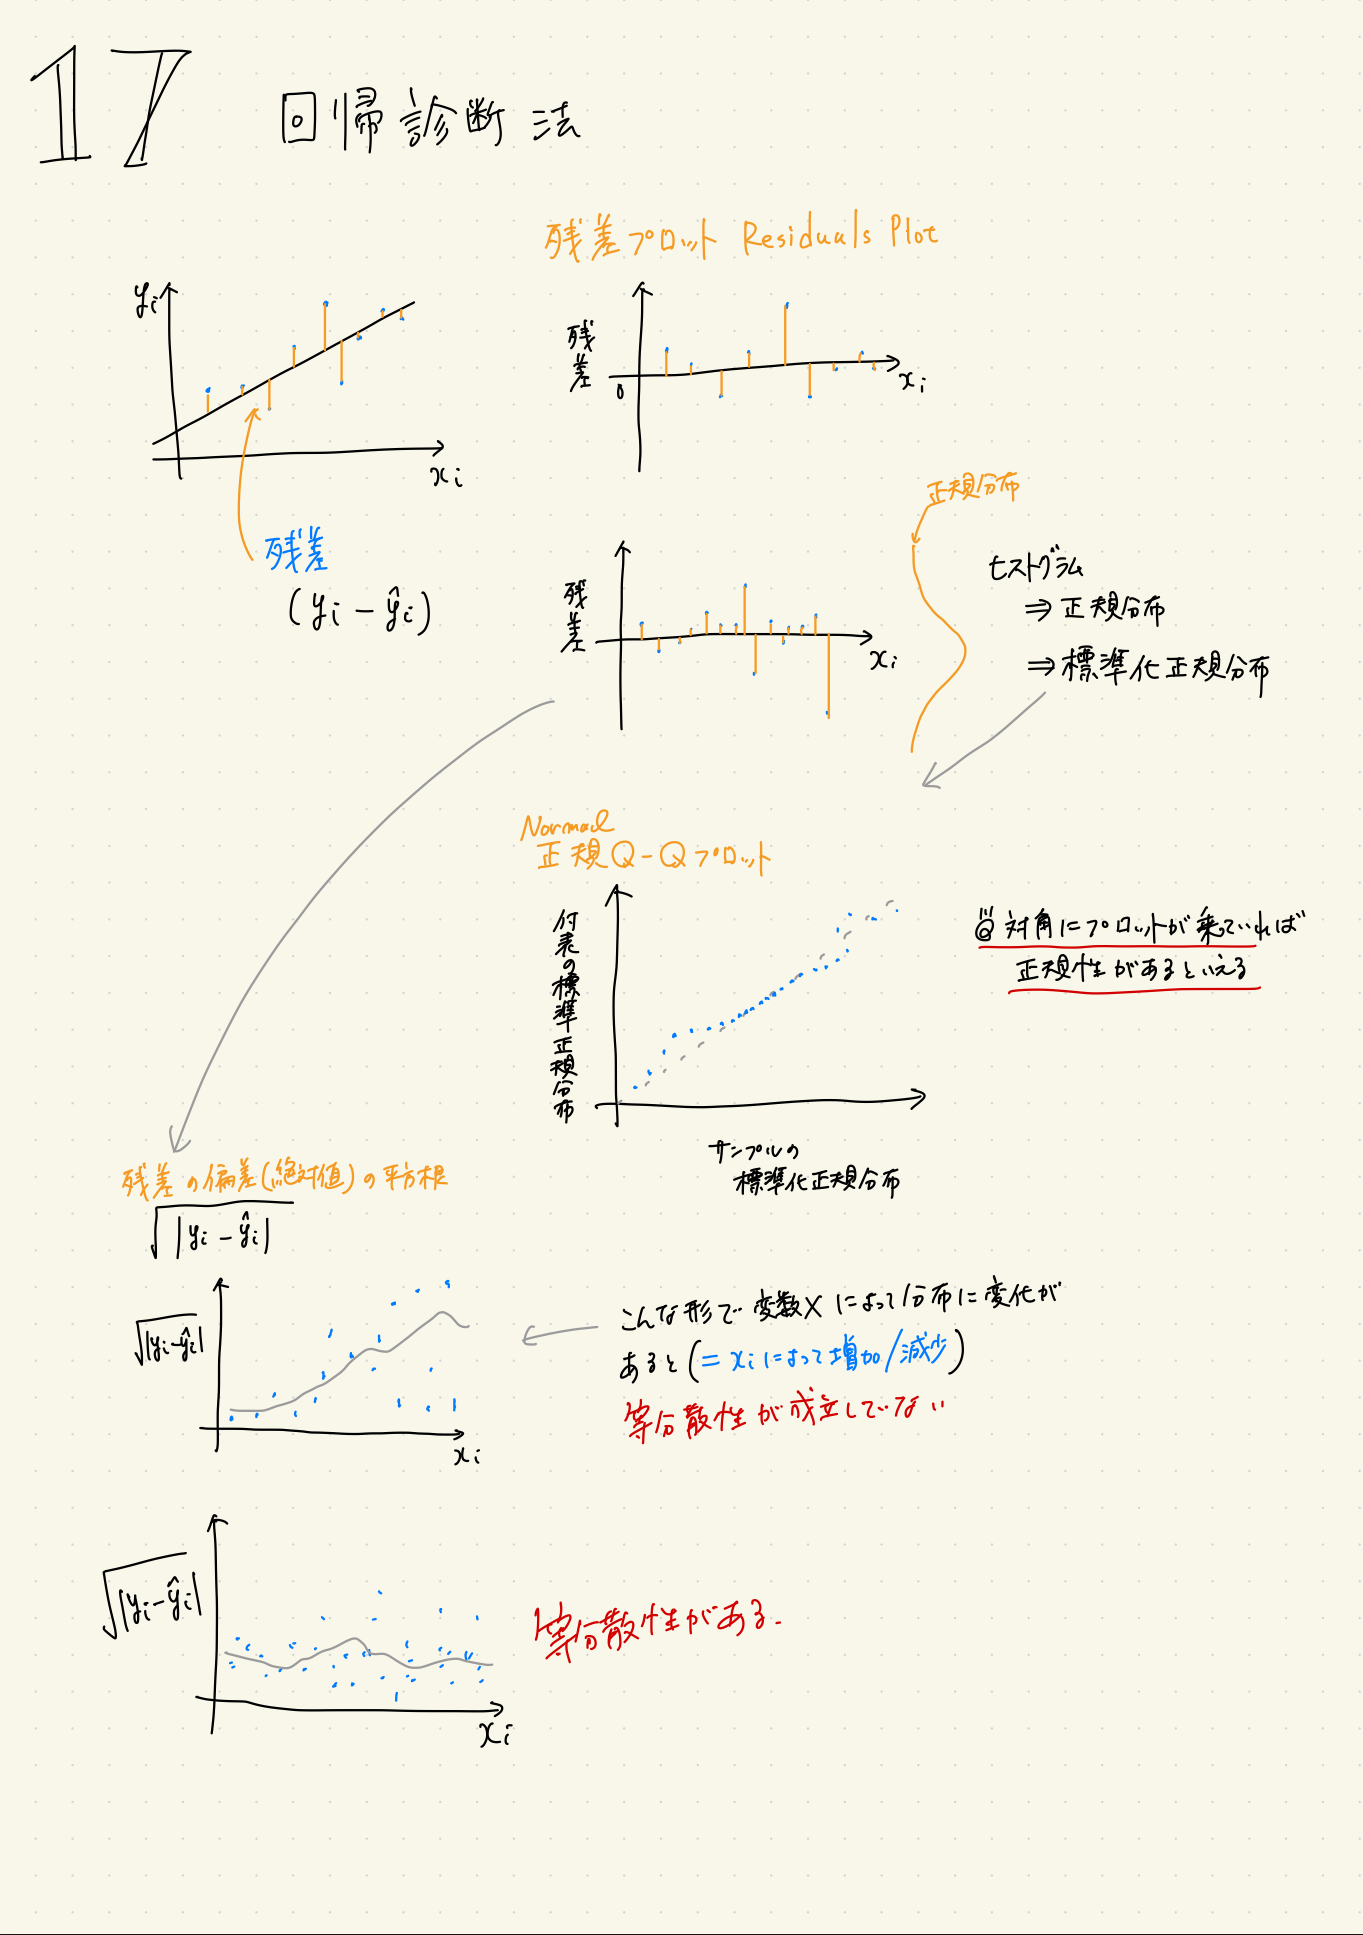 17
回帰診断法
残差プロット Residuals Plot
yi
xi
残差
(yi - ŷi)
残差
0
xi
正規分布
残差
xi
ヒストグラム
⇒ 正規分布
⇒ 標準化正規分布
Normal
正規Q-Qプロット
付表の標準正規分布
サンプルの
標準化正規分布
対角にプロットが乗っていれば
正規性があるといえる
残差の偏差(絶対値)の平方根
√|yi - ŷi|
√|yi-ŷi|
xi
こんな形で変数Xによって分布に変化が
あると(= xiによって増加/減少)
等分散性が成立していない
√|yi-ŷi|
xi
等分散性がある.